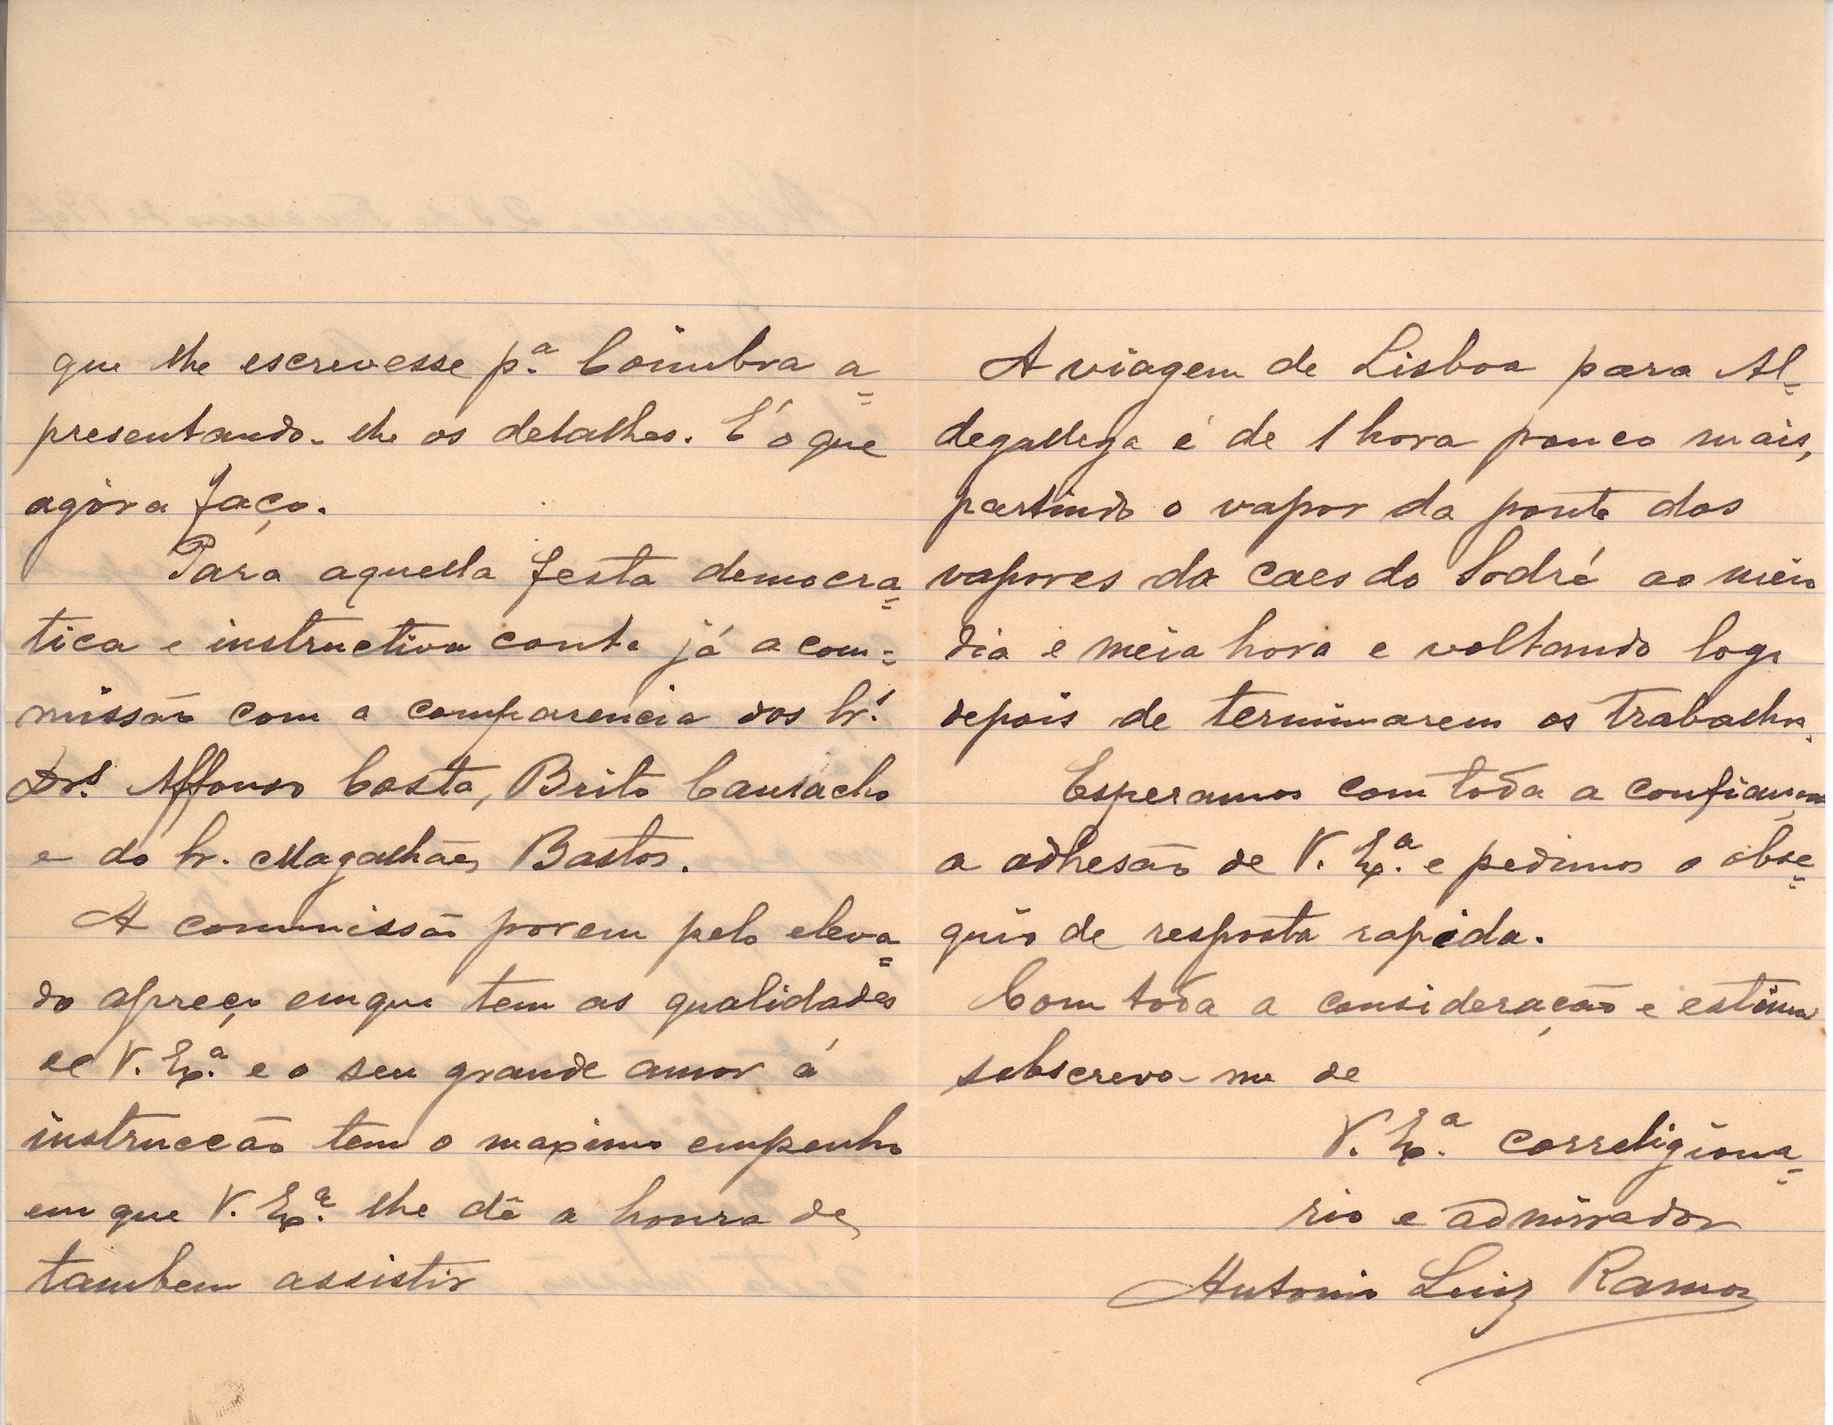 que lhe escrevesse p.ª Coimbra a=
presentando-lhe os detalhes. É o que
agóra faço.
Para aquella festa democra=
tica e instructiva conta já a com=
missão com a comparencia dos Sr.s
Drs. Affonso Costa, Brito Camacho
e do Sr. Magalhães Bastos.
A commissão porem pelo eleva=
do apreço em que tem as qualidades
de V. Ex.ª e o seu grande amor á
instrucção tem o maximo empenho
em que V. Ex.ª lhe dê a honra de
tambem assistir
A viagem de Lisboa para Al=
degallega é de 1 hora pouco mais,
partindo o vapor da ponte dos
vapores do caes do Sodré ao meio
dia e meia hora e voltando logo
depois de terminarem os trabalhos.
Esperamos com toda a confiança
a adhesão de V. Ex.ª e pedimos o obse=
quio de resposta rapida.
Com toda a consideração e estima
subscrevo-me de
V. Ex.ª correligiona=
rio e admirador
Antonio Luiz Ramos